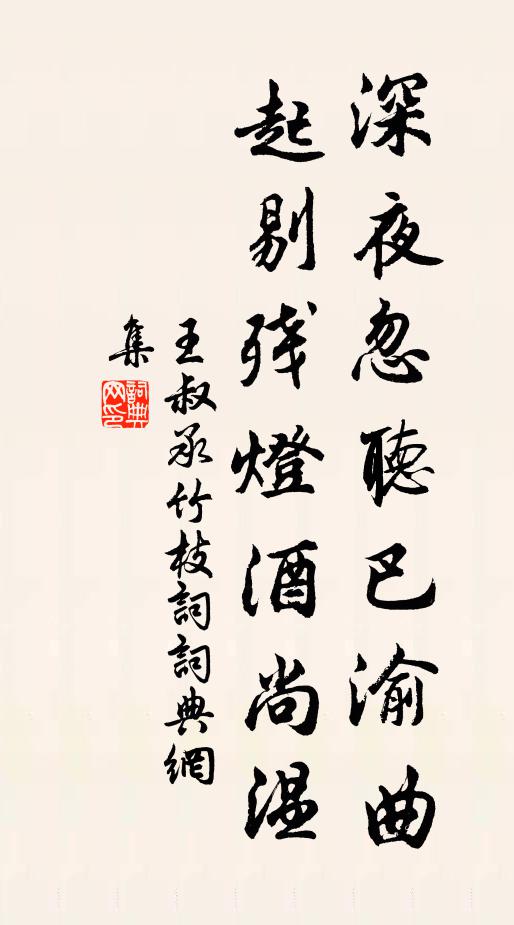 深夜忽聽巴渝曲
起剔残燈酒尚温
王叔承竹枝詞詞典網
集
詞典
网印